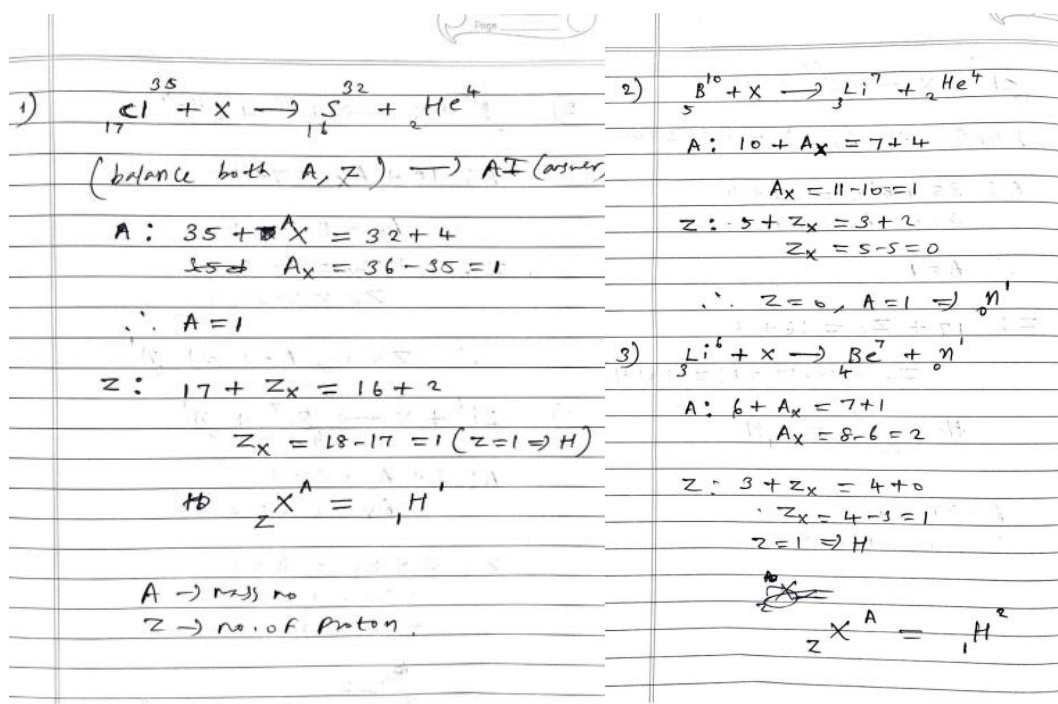 Page
1) ₁₇Cl³⁵ + X → ₁₆S³² + ₂He⁴
(balance both A, Z) → AI (answer)
A : 35 + ᴬX = 32 + 4
Aₓ = 36 - 35 = 1
∴ A = 1
Z : 17 + Zₓ = 16 + 2
Zₓ = 18 - 17 = 1 (Z = 1 ⇒ H)
zXᴬ = ₁H¹
A → mass no
Z → no. of proton.
2) ₅B¹⁰ + X → ₃Li⁷ + ₂He⁴
A : 10 + Aₓ = 7 + 4
Aₓ = 11 - 10 = 1
Z : 5 + Zₓ = 3 + 2
Zₓ = 5 - 5 = 0
∴ Z = 0, A = 1 ⇒ ₀n¹
3) ₃Li⁶ + X → ₄Be⁷ + ₀n¹
A : 6 + Aₓ = 7 + 1
Aₓ = 8 - 6 = 2
Z : 3 + Zₓ = 4 + 0
Zₓ = 4 - 3 = 1
Z = 1 ⇒ H
zXᴬ = ₁H²